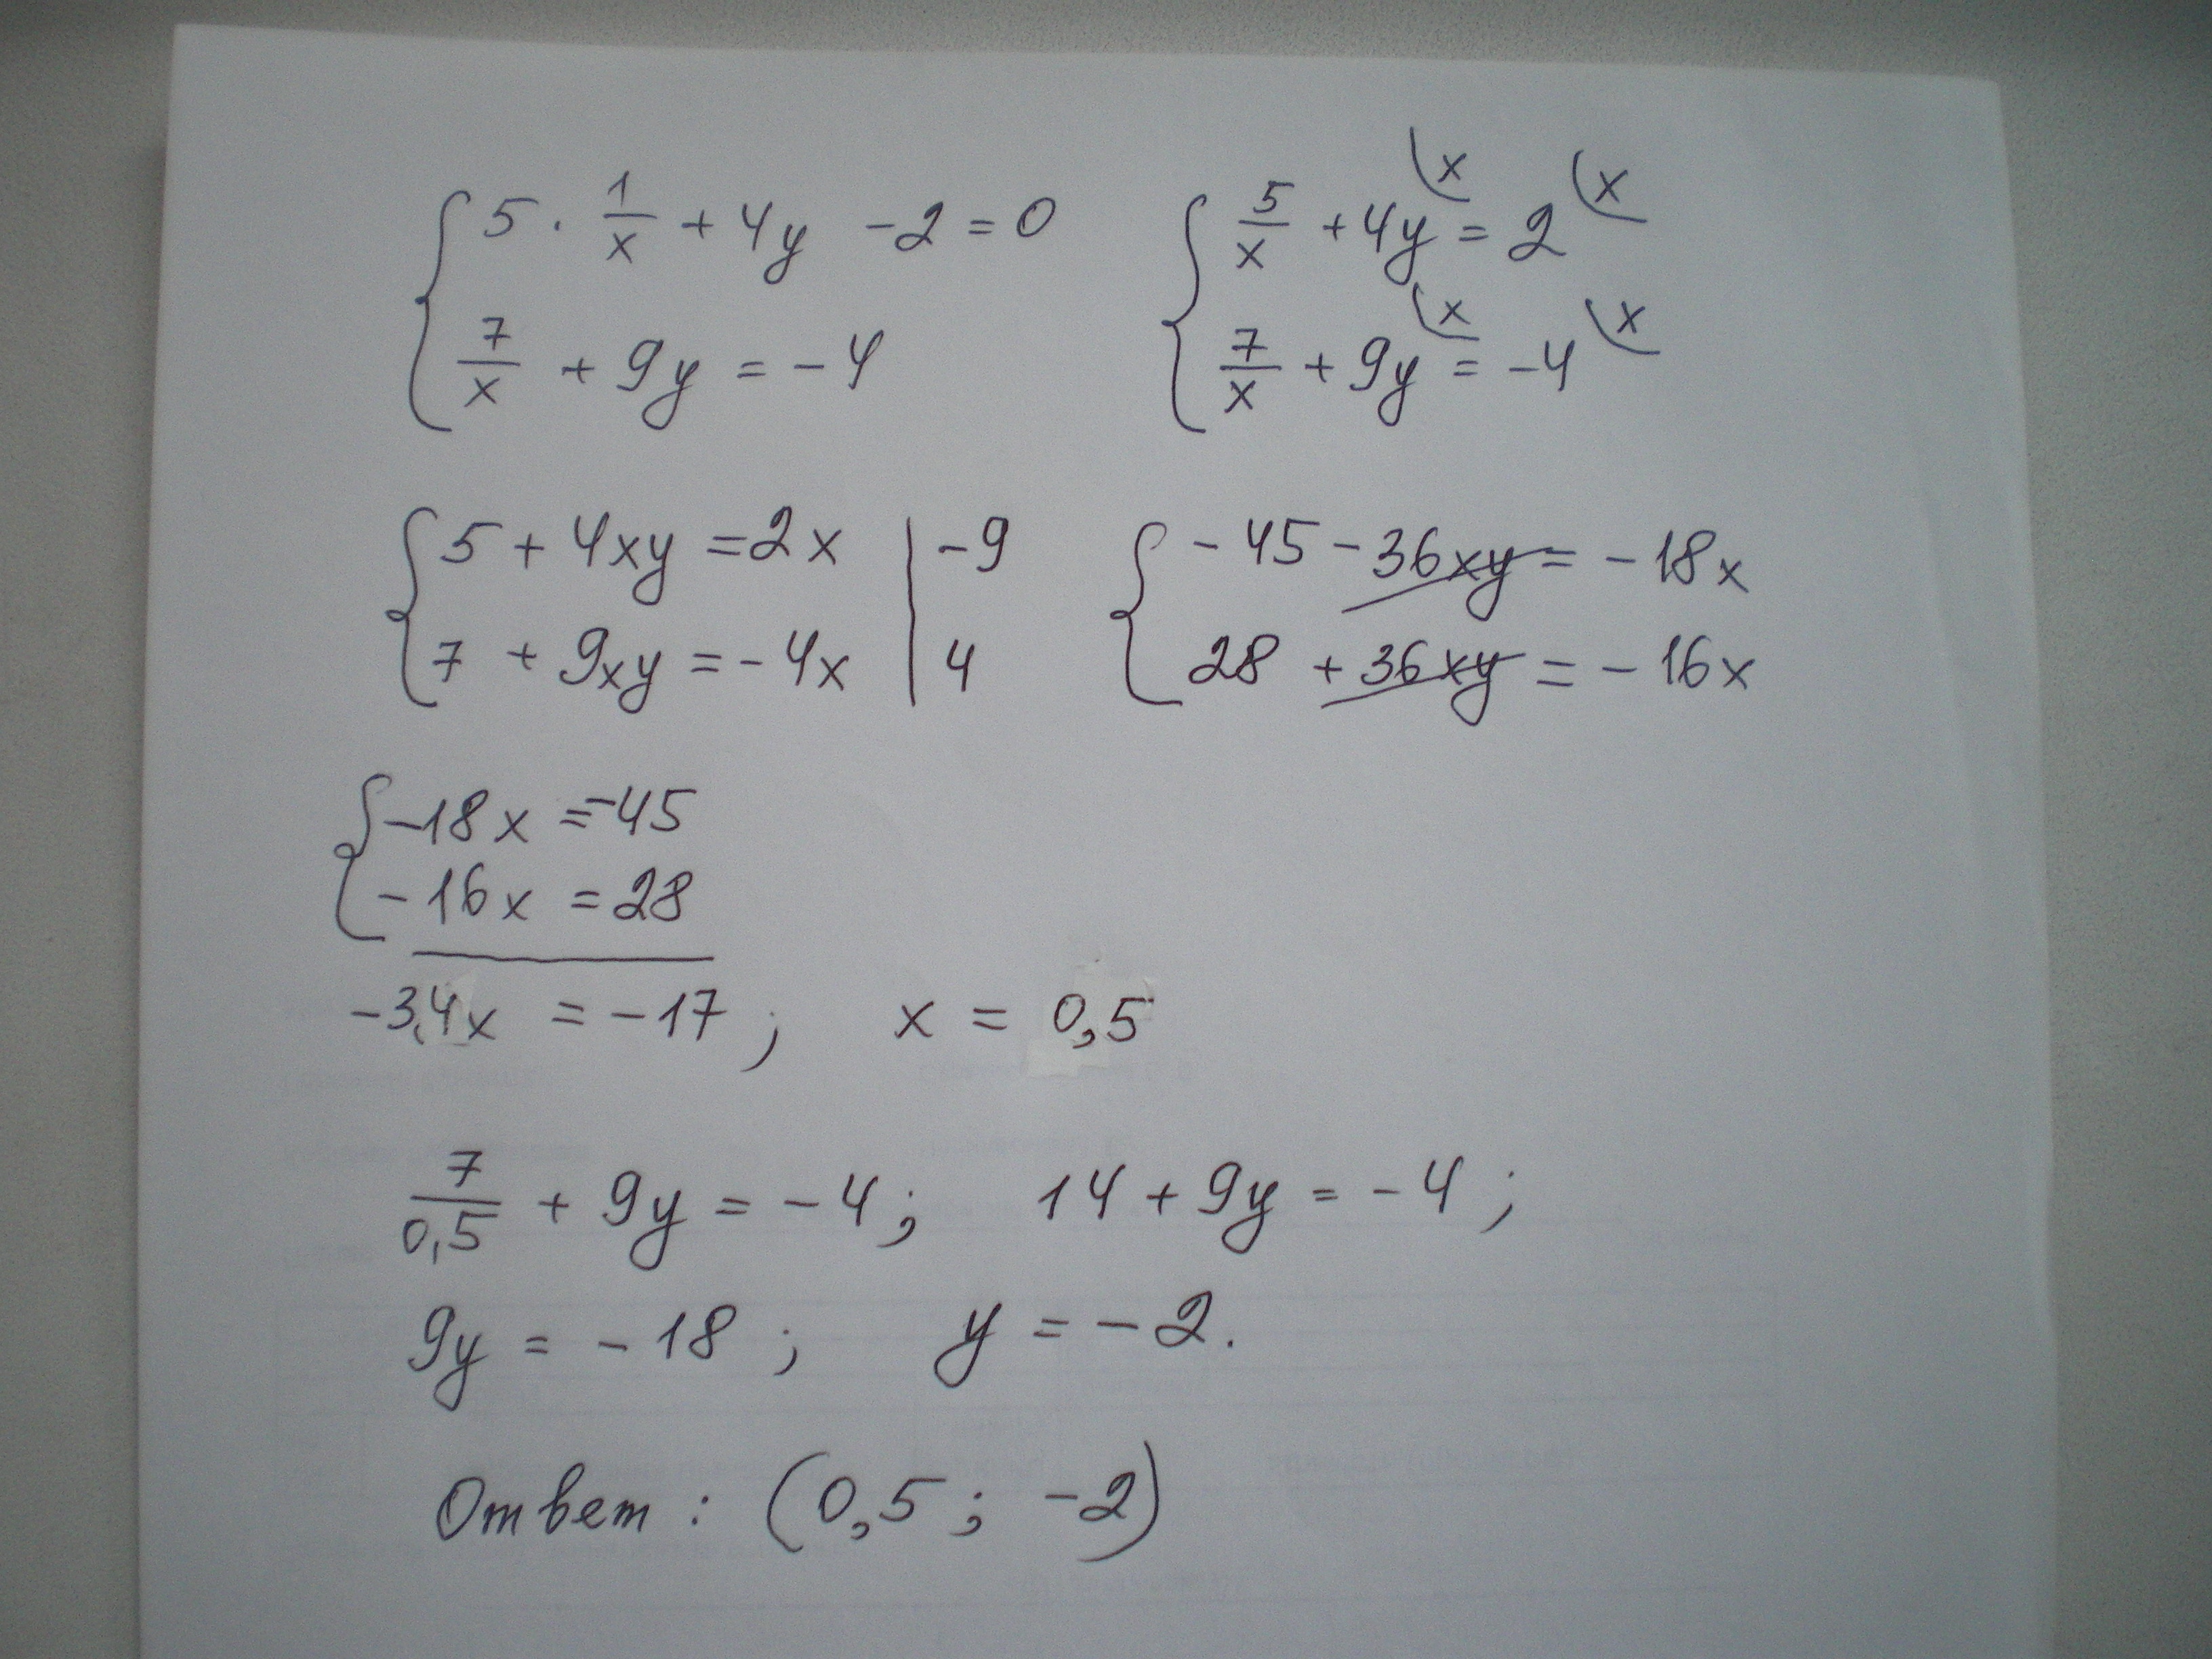 5 · 1/x + 4y - 2 = 0
7/x + 9y = -4
5/x + 4y = 2 x x
7/x + 9y = -4 x x
5 + 4xy = 2x | -9
7 + 9xy = -4x | 4
-45 - 36xy = -18x
28 + 36xy = -16x
-18x = -45
-16x = 28
-3,4x = -17 ; x = 0,5
7/0,5 + 9y = -4 ; 14 + 9y = -4 ;
9y = -18 ; y = -2.
Ответ : (0,5 ; -2)